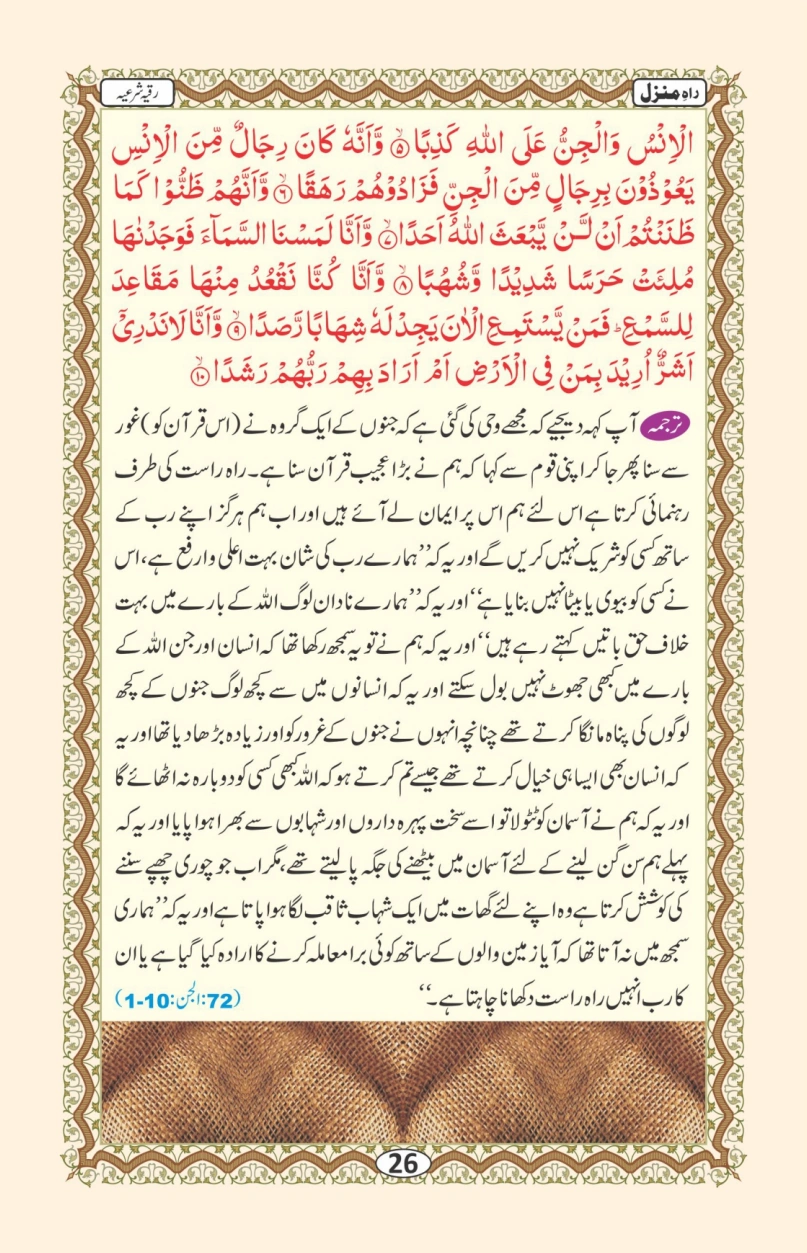 راہِ منزل
رقیہ شرعیہ
الْاِنْسُ وَالْجِنُّ عَلَى اللّٰهِ كَذِبًا ۙ۵ وَّاَنَّهٗ كَانَ رِجَالٌ مِّنَ الْاِنْسِ
يَعُوْذُوْنَ بِرِجَالٍ مِّنَ الْجِنِّ فَزَادُوْهُمْ رَهَقًا ۙ۶ وَّاَنَّهُمْ ظَنُّوْا كَمَا
ظَنَنْتُمْ اَنْ لَّنْ يَّبْعَثَ اللّٰهُ اَحَدًا ۙ۷ وَّاَنَّا لَمَسْنَا السَّمَآءَ فَوَجَدْنٰهَا
مُلِئَتْ حَرَسًا شَدِيْدًا وَّشُهُبًا ۙ۸ وَّاَنَّا كُنَّا نَقْعُدُ مِنْهَا مَقَاعِدَ
لِلسَّمْعِ ؕ فَمَنْ يَّسْتَمِعِ الْاٰنَ يَجِدْ لَهٗ شِهَابًا رَّصَدًا ۙ۹ وَّاَنَّا لَا نَدْرِىْٓ
اَشَرٌّ اُرِيْدَ بِمَنْ فِى الْاَرْضِ اَمْ اَرَادَ بِهِمْ رَبُّهُمْ رَشَدًا ۙ۱۰
ترجمہ آپ کہہ دیجیے کہ مجھے وحی کی گئی ہے کہ جنوں کے ایک گروہ نے (اس قرآن کو) غور
سے سنا پھر جا کر اپنی قوم سے کہا کہ ہم نے بڑا عجیب قرآن سنا ہے۔ راہ راست کی طرف
رہنمائی کرتا ہے اس لئے ہم اس پر ایمان لے آئے ہیں اور اب ہم ہرگز اپنے رب کے
ساتھ کسی کو شریک نہیں کریں گے اور یہ کہ ’’ہمارے رب کی شان بہت اعلی وارفع ہے، اس
نے کسی کو بیوی یا بیٹا نہیں بنایا ہے‘‘ اور یہ کہ ’’ہمارے نادان لوگ اللہ کے بارے میں بہت
خلاف حق باتیں کہتے رہے ہیں‘‘ اور یہ کہ ہم نے تو یہ سمجھ رکھا تھا کہ انسان اور جن اللہ کے
بارے میں کبھی جھوٹ نہیں بول سکتے اور یہ کہ انسانوں میں سے کچھ لوگ جنوں کے کچھ
لوگوں کی پناہ مانگا کرتے تھے چنانچہ انہوں نے جنوں کے غرور کو اور زیادہ بڑھا دیا تھا اور یہ
کہ انسان بھی ایسا ہی خیال کرتے تھے جیسے تم کرتے ہو کہ اللہ کبھی کسی کو دوبارہ نہ اٹھائے گا
اور یہ کہ ہم نے آسمان کو ٹٹولا تو اسے سخت پہرہ داروں اور شہابوں سے بھرا ہوا پایا اور یہ کہ
پہلے ہم سن گن لینے کے لئے آسمان میں بیٹھنے کی جگہ پا لیتے تھے، مگر اب جو چوری چھپے سننے
کی کوشش کرتا ہے وہ اپنے لئے گھات میں ایک شہاب ثاقب لگا ہوا پاتا ہے اور یہ کہ ’’ہماری
سمجھ میں نہ آتا تھا کہ آیا زمین والوں کے ساتھ کوئی برا معاملہ کرنے کا ارادہ کیا گیا ہے یا ان
کا رب انہیں راہ راست دکھانا چاہتا ہے۔‘‘ (72:الجن:10-1)
26